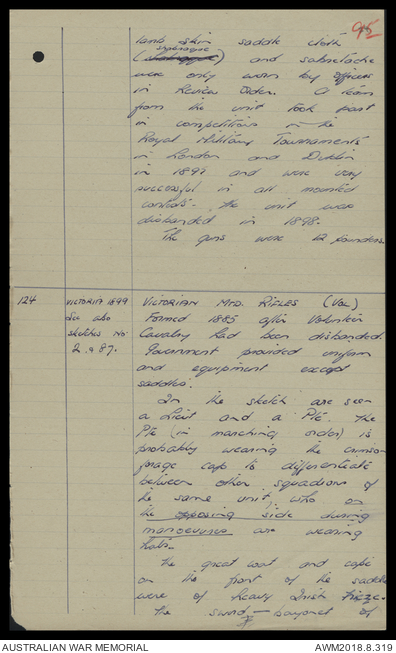 95
lamb skin saddle cloth
shabraque
(shabraque) and sabretache
were only worn by officers
in Review Order. A team
from the unit took part
in competitions in the
Royal Military Tournaments
in London and Dublin
in 1897 and were very
successful in all mounted
contests. The unit was
disbanded in 1898.
The guns were 12 pounders.
124 VICTORIA 1899 VICTORIAN MTD. RIFLES (VOL)
See also Formed 1885 after Volunteer
sketches No Cavalry had been disbanded.
2 & 87. Government provided uniform
and equipment except
saddles.
In the sketch are seen
a Lieut and a Pte. The
Pte (in marching order) is
probably wearing the crimson
forage cap to differentiate
between other squadrons of
the same unit, who on
the opposing side during
manoeuvres are wearing
hats.
The great coat and cape
on the front of the saddle
were of heavy Irish frieze.
The sword-bayonet of
AUSTRALIAN WAR MEMORIAL AWM2018.8.319